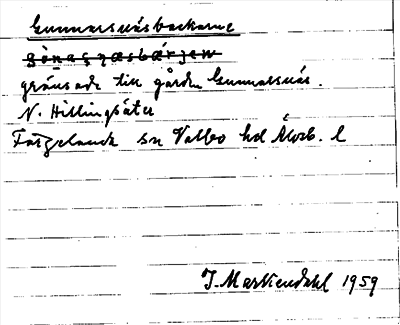 Gunnarsnäsbackarne
gränsade till gården Gunnarsnäs.
N. Hillingsäter
Färgelanda sn Valbo hd Älvsb. l
J. Markendahl 1959